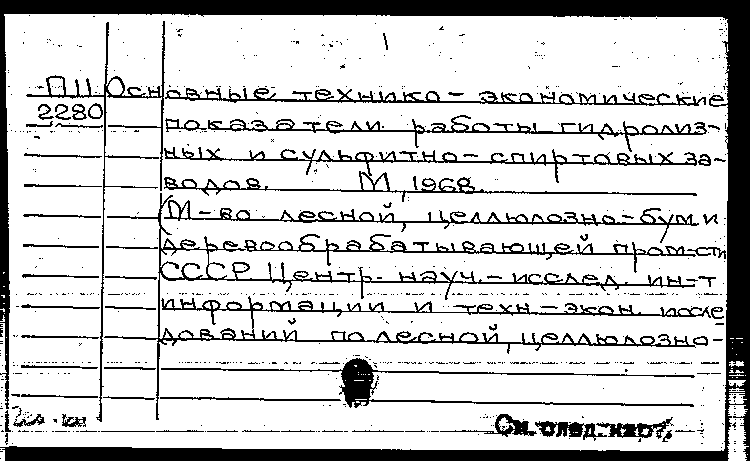 П11 Основные технико-экономические
2280 показатели работы гидролиз-
ных и сульфитно-спиртовых за-
водов. М., 1968.
(М-во лесной, целлюлозно-бум и
деревообрабатывающей пром-сти
СССР Центр. науч.-исслед. ин-т
информации и техн.-экон. иссле
дований по лесной, целлюлозно-
См. след. карт.